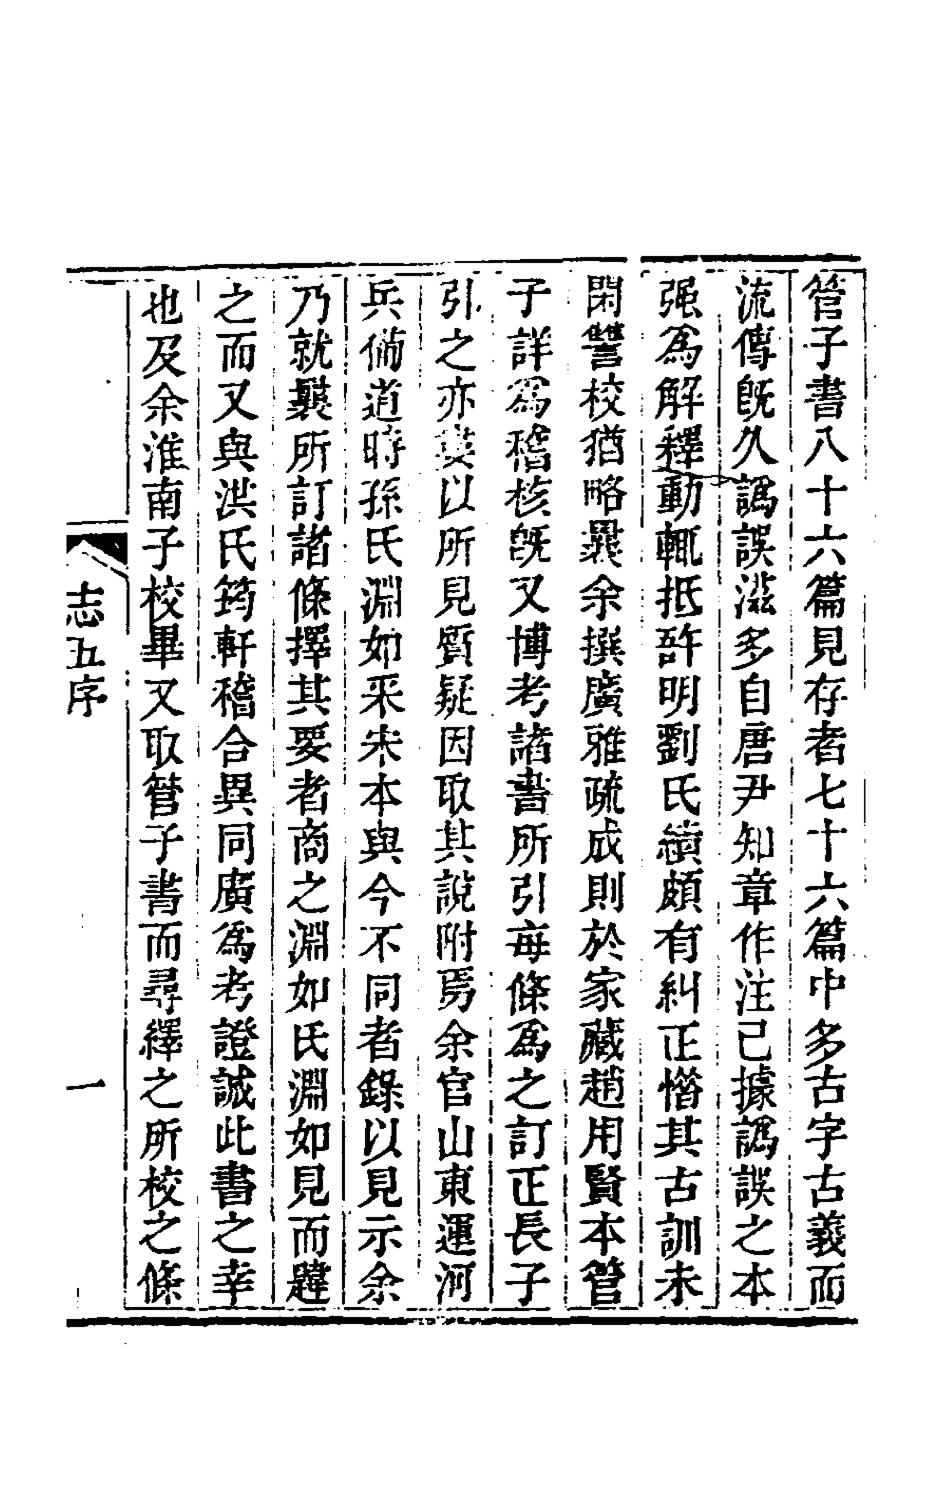 管子書八十六篇見存者七十六篇中多古字古義而
流傳旣久譌誤滋多自唐尹知章作注已據譌誤之本
强爲解釋動輒抵啎明劉氏績頗有糾正惜其古訓未
閑讎校猶略曩余撰廣雅疏成則於家藏趙用賢本管
子詳爲稽核旣又博考諸書所引每條爲之訂正長子
引之亦婁以所見質疑因取其說附焉余官山東運河
兵備道時孫氏淵如采宋本與今不同者錄以見示余
乃就曩所訂諸條擇其要者商之淵如氏淵如見而韙
之而又與洪氏筠軒稽合異同廣爲考證誠此書之幸
也及余淮南子校畢又取管子書而尋繹之所校之條
志五序
一